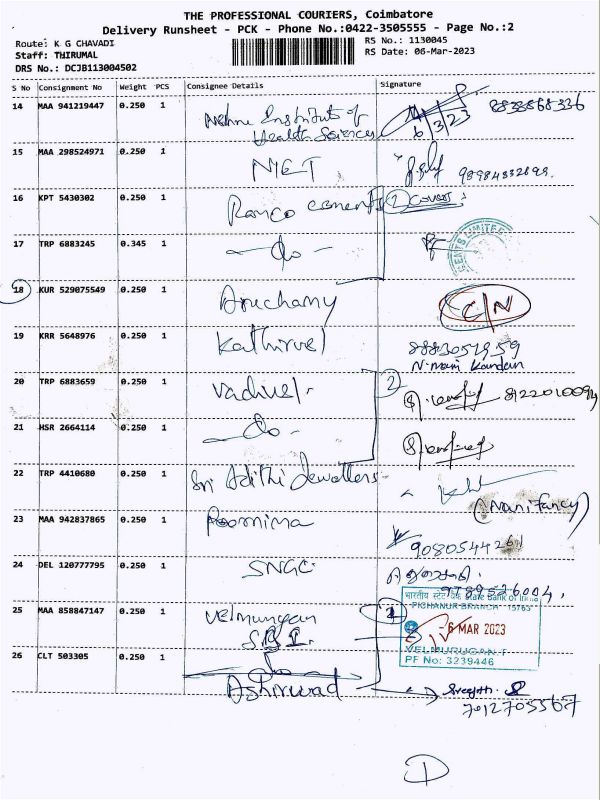 THE PROFESSIONAL COURIERS, Coimbatore
Delivery Runsheet - PCK - Phone No.:0422-3505555 - Page No.:2
Route: K G CHAVADI
RS No.: 1130045
Staff: THIRUMAL
RS Date: 06-Mar-2023
DRS No.: DCJB113004502
S No Consignment No Weight PCS Consignee Details Signature
14 MAA 941219447 0.250 1 Nehru Institute of Health Sciences 6/3/23 8838568336
15 MAA 298524971 0.250 1 NIET
16 KPT 5430302 0.250 1 Ramco cements 2 Covers
17 TRP 6883245 0.345 1 - do - ENTS LIMITED
18 KUR 529075549 0.250 1 Aruchamy C/N
19 KRR 5648976 0.250 1 Kathirvel 8883051959
N. mani kandan
20 TRP 6883659 0.250 1 Vadivel 2 8122010094
21 HSR 2664114 0.250 1 - do -
22 TRP 4410680 0.250 1 Sri Adithi Jewellers
(Mani Fancy)
23 MAA 942837865 0.250 1 Poornima
24 DEL 120777795 0.250 1 SNGC
9789526004,
भारतीय स्टेट बैंक State Bank of India
PICHANUR BRANCH 15763
25 MAA 858847147 0.250 1 Velmurugan
S.B.I.
-6 MAR 2023
VELMURUGAN T
PF No: 3239446
26 CLT 503305 0.250 1 Ashirwad Sreejith
7012705567
1